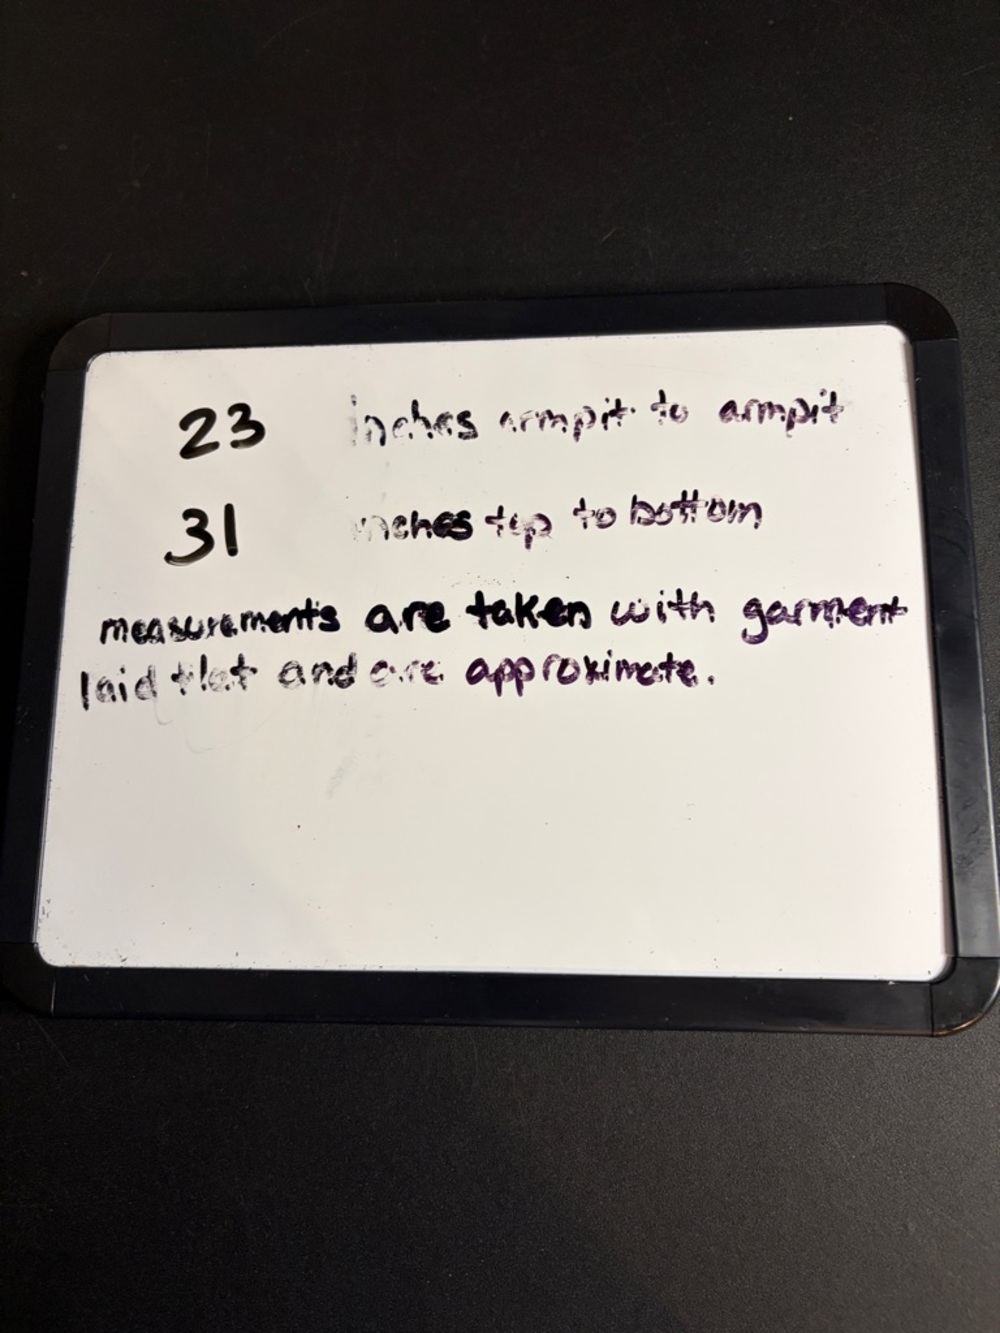 23 inches armpit to armpit
31 inches top to bottom
measurements are taken with garment
laid flat and are approximate.